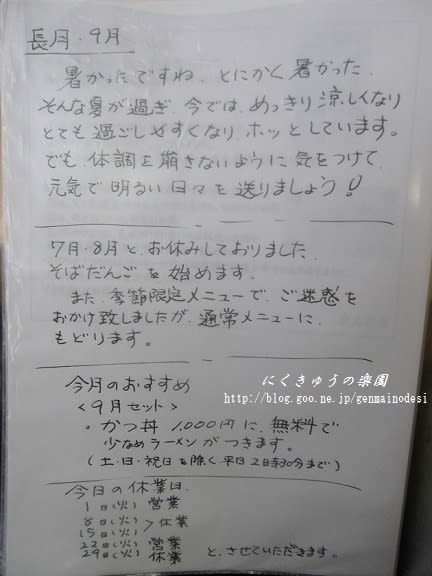 長月・9月
暑かったですね、とにかく暑かった、
そんな夏が過ぎ 今では、めっきり涼しくなり
とても過ごしやすくなり ホッとしています。
でも、体調を崩さないように 気をつけて、
元気で明るい日々を送りましょう!
7月・8月と、お休みしておりました、
そばだんごを始めます。
また、季節限定メニューで、ご迷惑を
おかけ致しましたが、通常メニューに、
もどります。
今月のおすすめ
にくきゅうの楽園
<9月セット>
http://blog.goo.ne.jp/genmainodesi
・かつ丼 1,000円に、無料で
少なめラーメンがつきます。
(土・日・祝日を除く平日2時30分まで)
今日の休業日
1日(火) 営業
8日(火) > 休業
15日(火)
22日(火) 営業
29日(火) 休業 と、させていただきます。